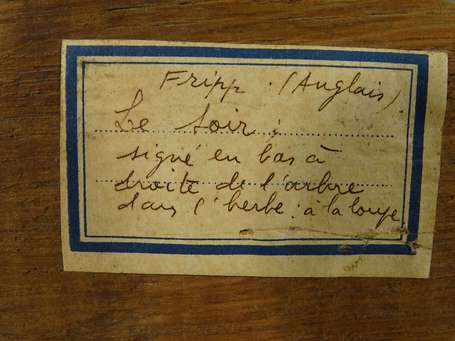 Fripp. (Anglais)
Le Soir :
signé en bas à
droite de l'arbre
dans l'herbe : à la loupe